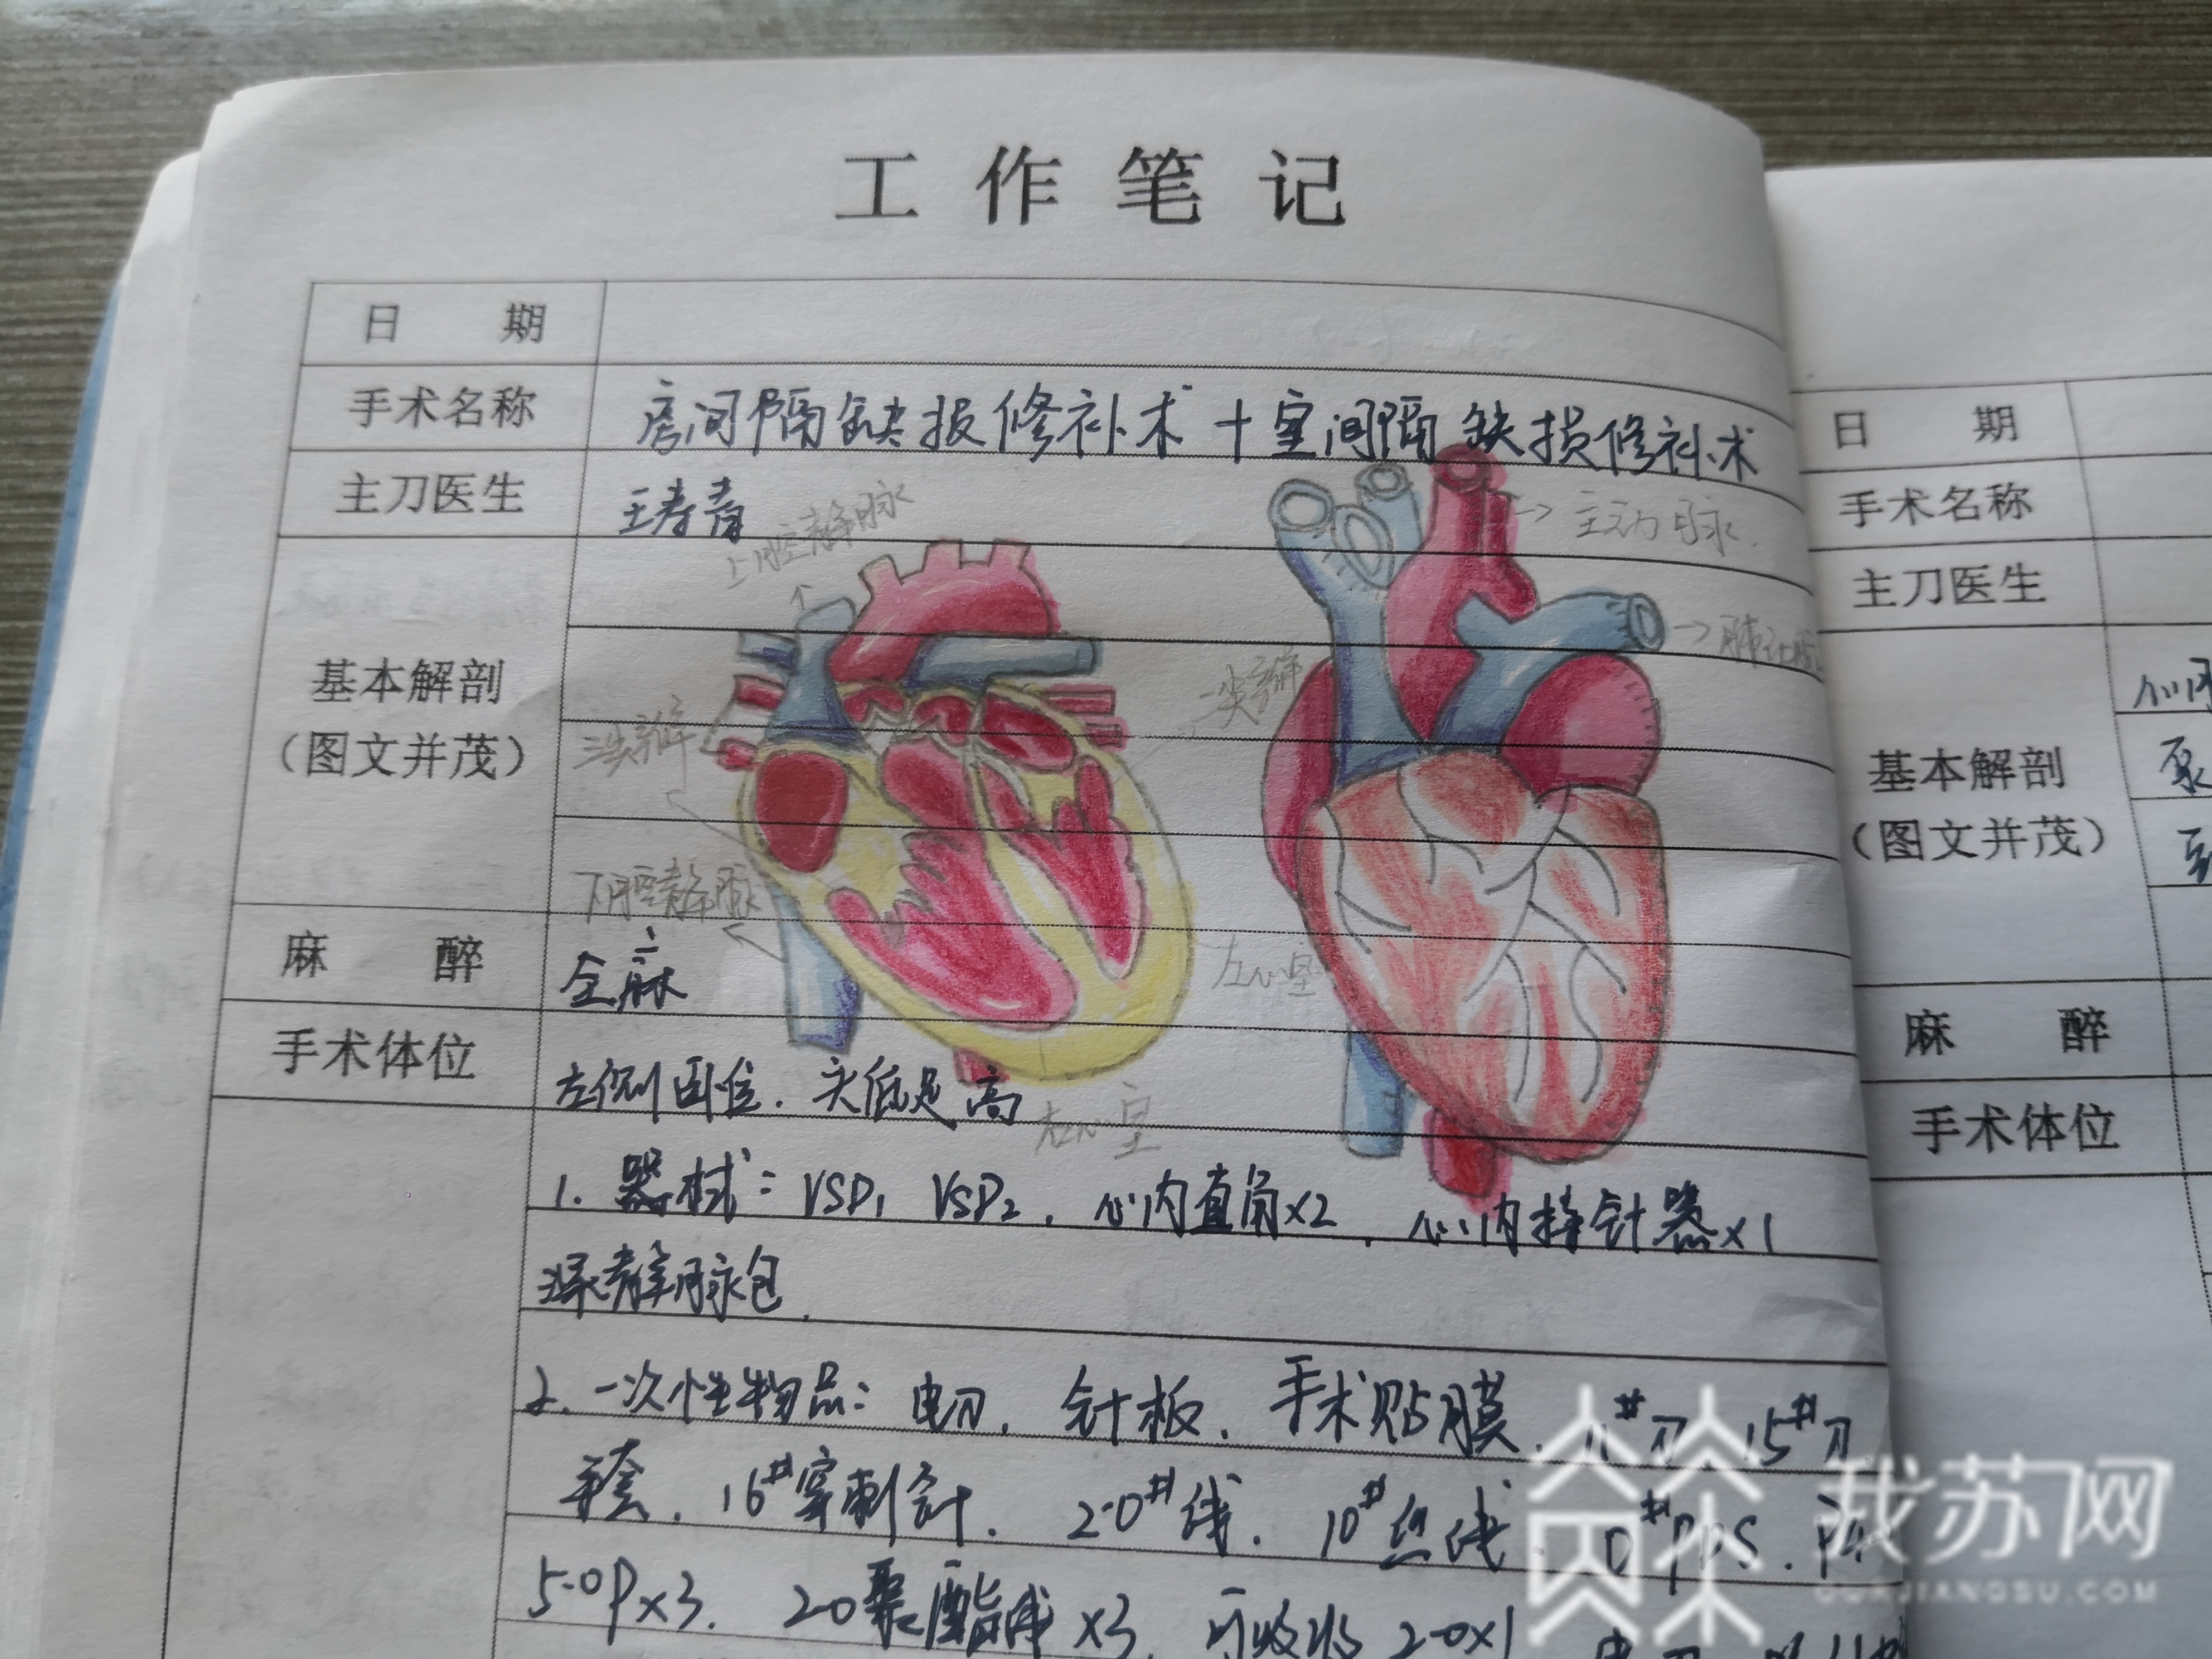 工作笔记
日 期
手术名称 房间隔缺损修补术+室间隔缺损修补术
主刀医生 王寿青
上腔静脉
→主动脉
→肺动脉
二尖瓣
三尖瓣
基本解剖
(图文并茂)
下腔静脉
左心室
麻 醉 全麻
手术体位 左侧卧位.头低足高
右心室
1.器械:VSD1 VSD2,心内直角×2,心内持针器×1
深静脉包.
2.一次性物品:电刀,针板,手术贴膜,11#刀,15#刀
手套,16#穿刺针,2-0#线,10#丝线,0#PDS,
5-0P×3,2-0聚酯线×3,可吸收2-0×1
日 期
手术名称
主刀医生
基本解剖
(图文并茂)
麻 醉
手术体位
我苏网
OURJIANGSU.COM